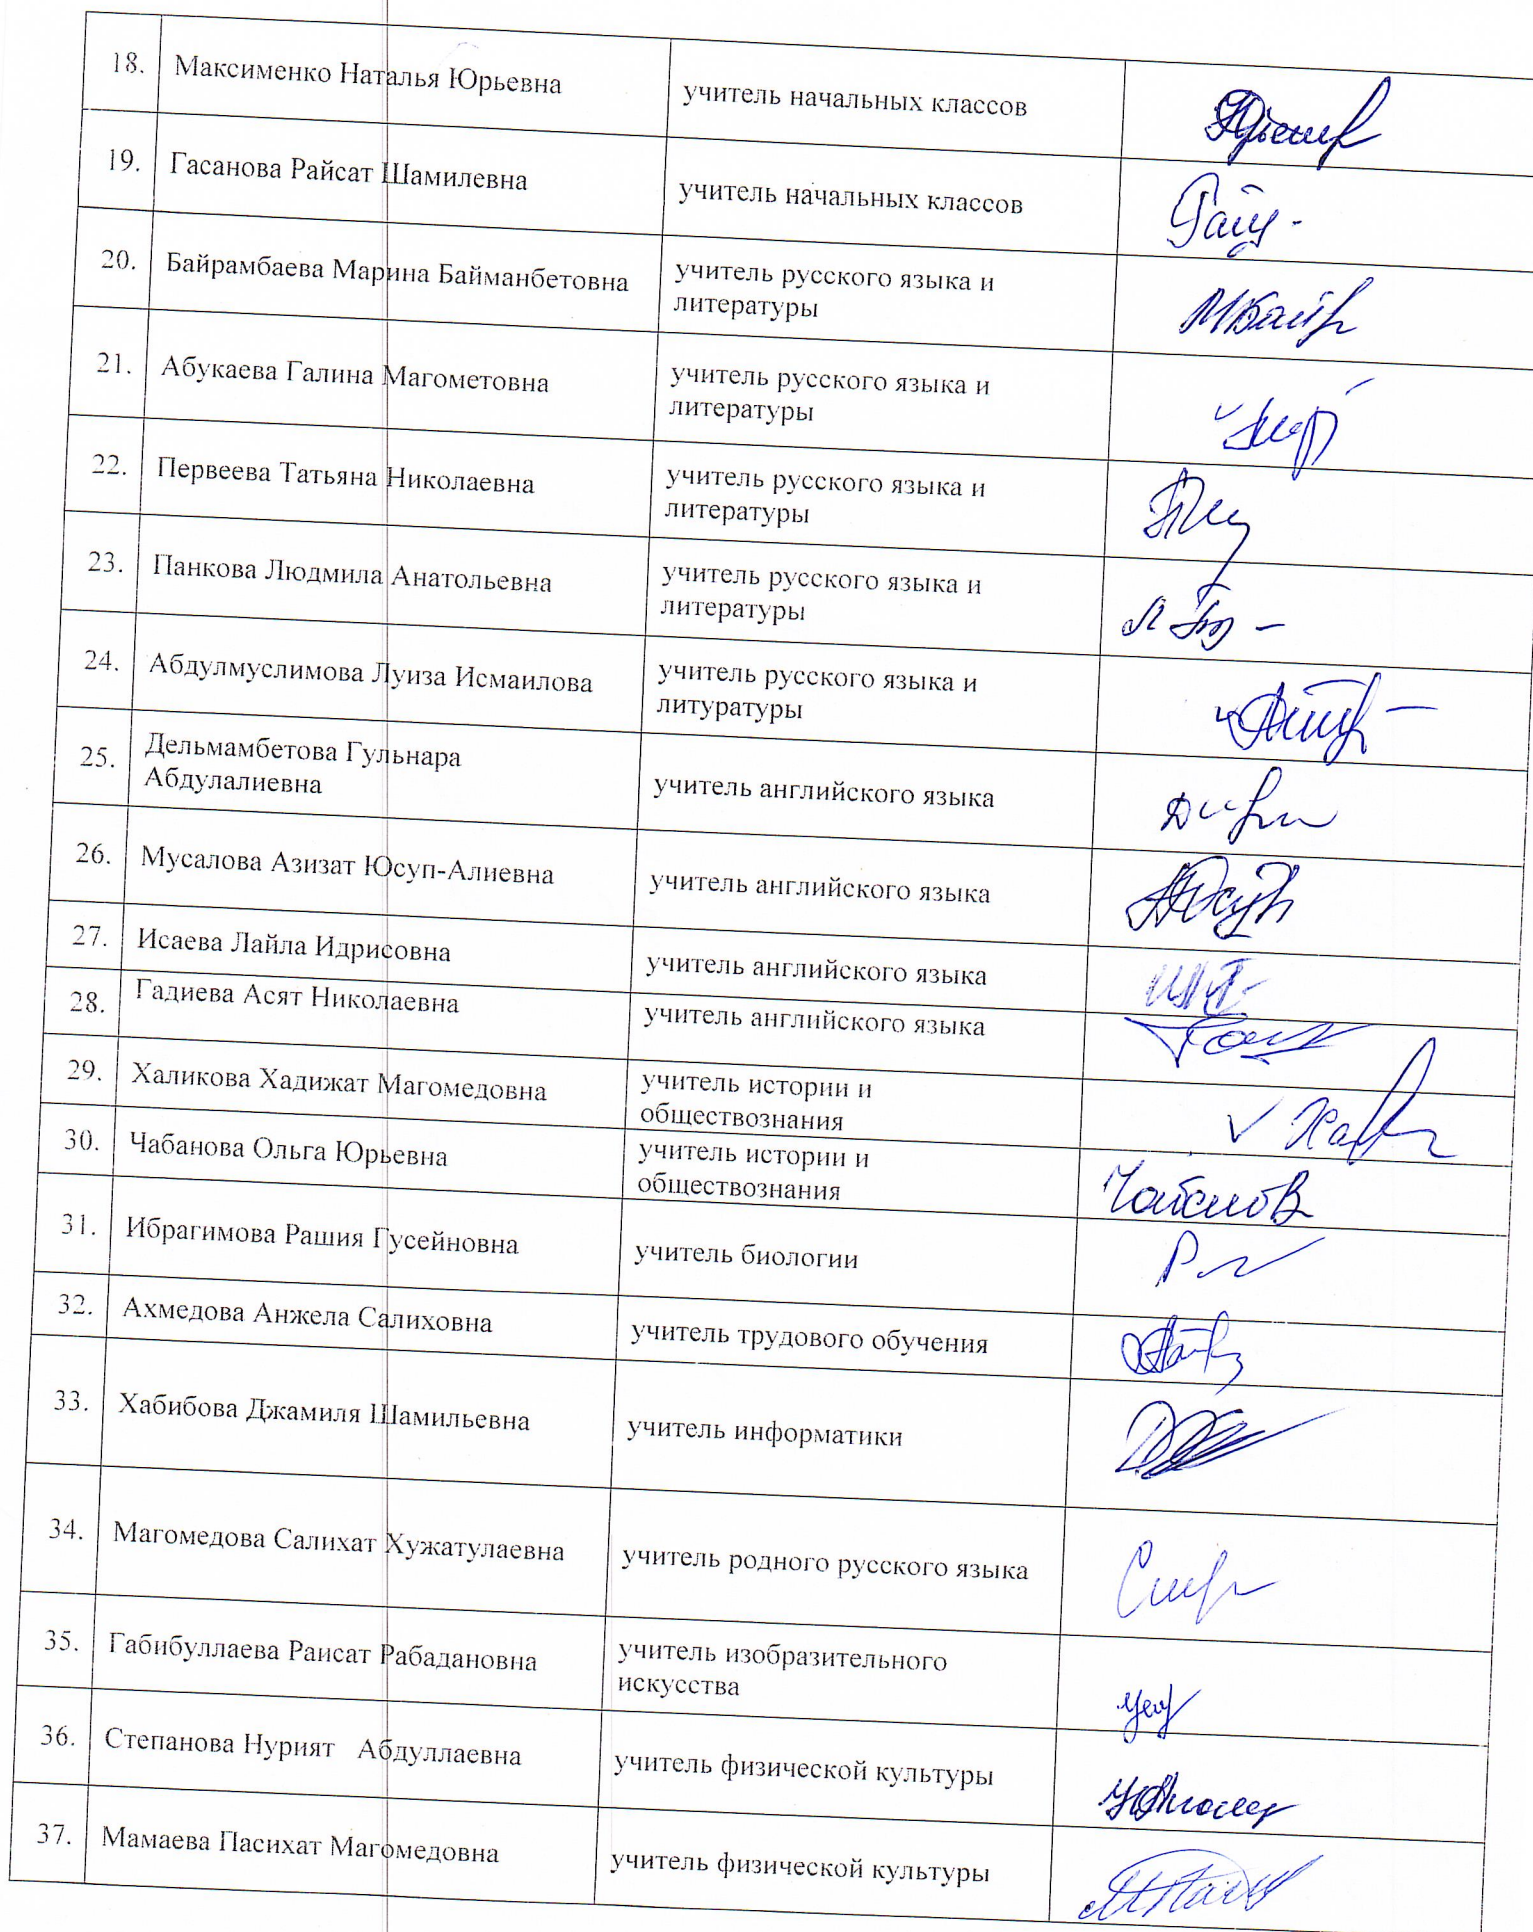 18. Максименко Наталья Юрьевна учитель начальных классов
19. Гасанова Райсат Шамилевна учитель начальных классов
20. Байрамбаева Марина Байманбетовна учитель русского языка и
литературы
21. Абукаева Галина Магометовна учитель русского языка и
литературы
22. Первеева Татьяна Николаевна учитель русского языка и
литературы
23. Панкова Людмила Анатольевна учитель русского языка и
литературы
24. Абдулмуслимова Луиза Исмаилова учитель русского языка и
литуратуры
25. Дельмамбетова Гульнара
Абдулалиевна учитель английского языка
26. Мусалова Азизат Юсуп-Алиевна учитель английского языка
27. Исаева Лайла Идрисовна учитель английского языка
28. Гадиева Асят Николаевна учитель английского языка
29. Халикова Хадижат Магомедовна учитель истории и
обществознания
30. Чабанова Ольга Юрьевна учитель истории и
обществознания
31. Ибрагимова Рашия Гусейновна учитель биологии
32. Ахмедова Анжела Салиховна учитель трудового обучения
33. Хабибова Джамиля Шамильевна учитель информатики
34. Магомедова Салихат Хужатулаевна учитель родного русского языка
35. Габибуллаева Раисат Рабадановна учитель изобразительного
искусства
36. Степанова Нурият Абдуллаевна учитель физической культуры
37. Мамаева Пасихат Магомедовна учитель физической культуры